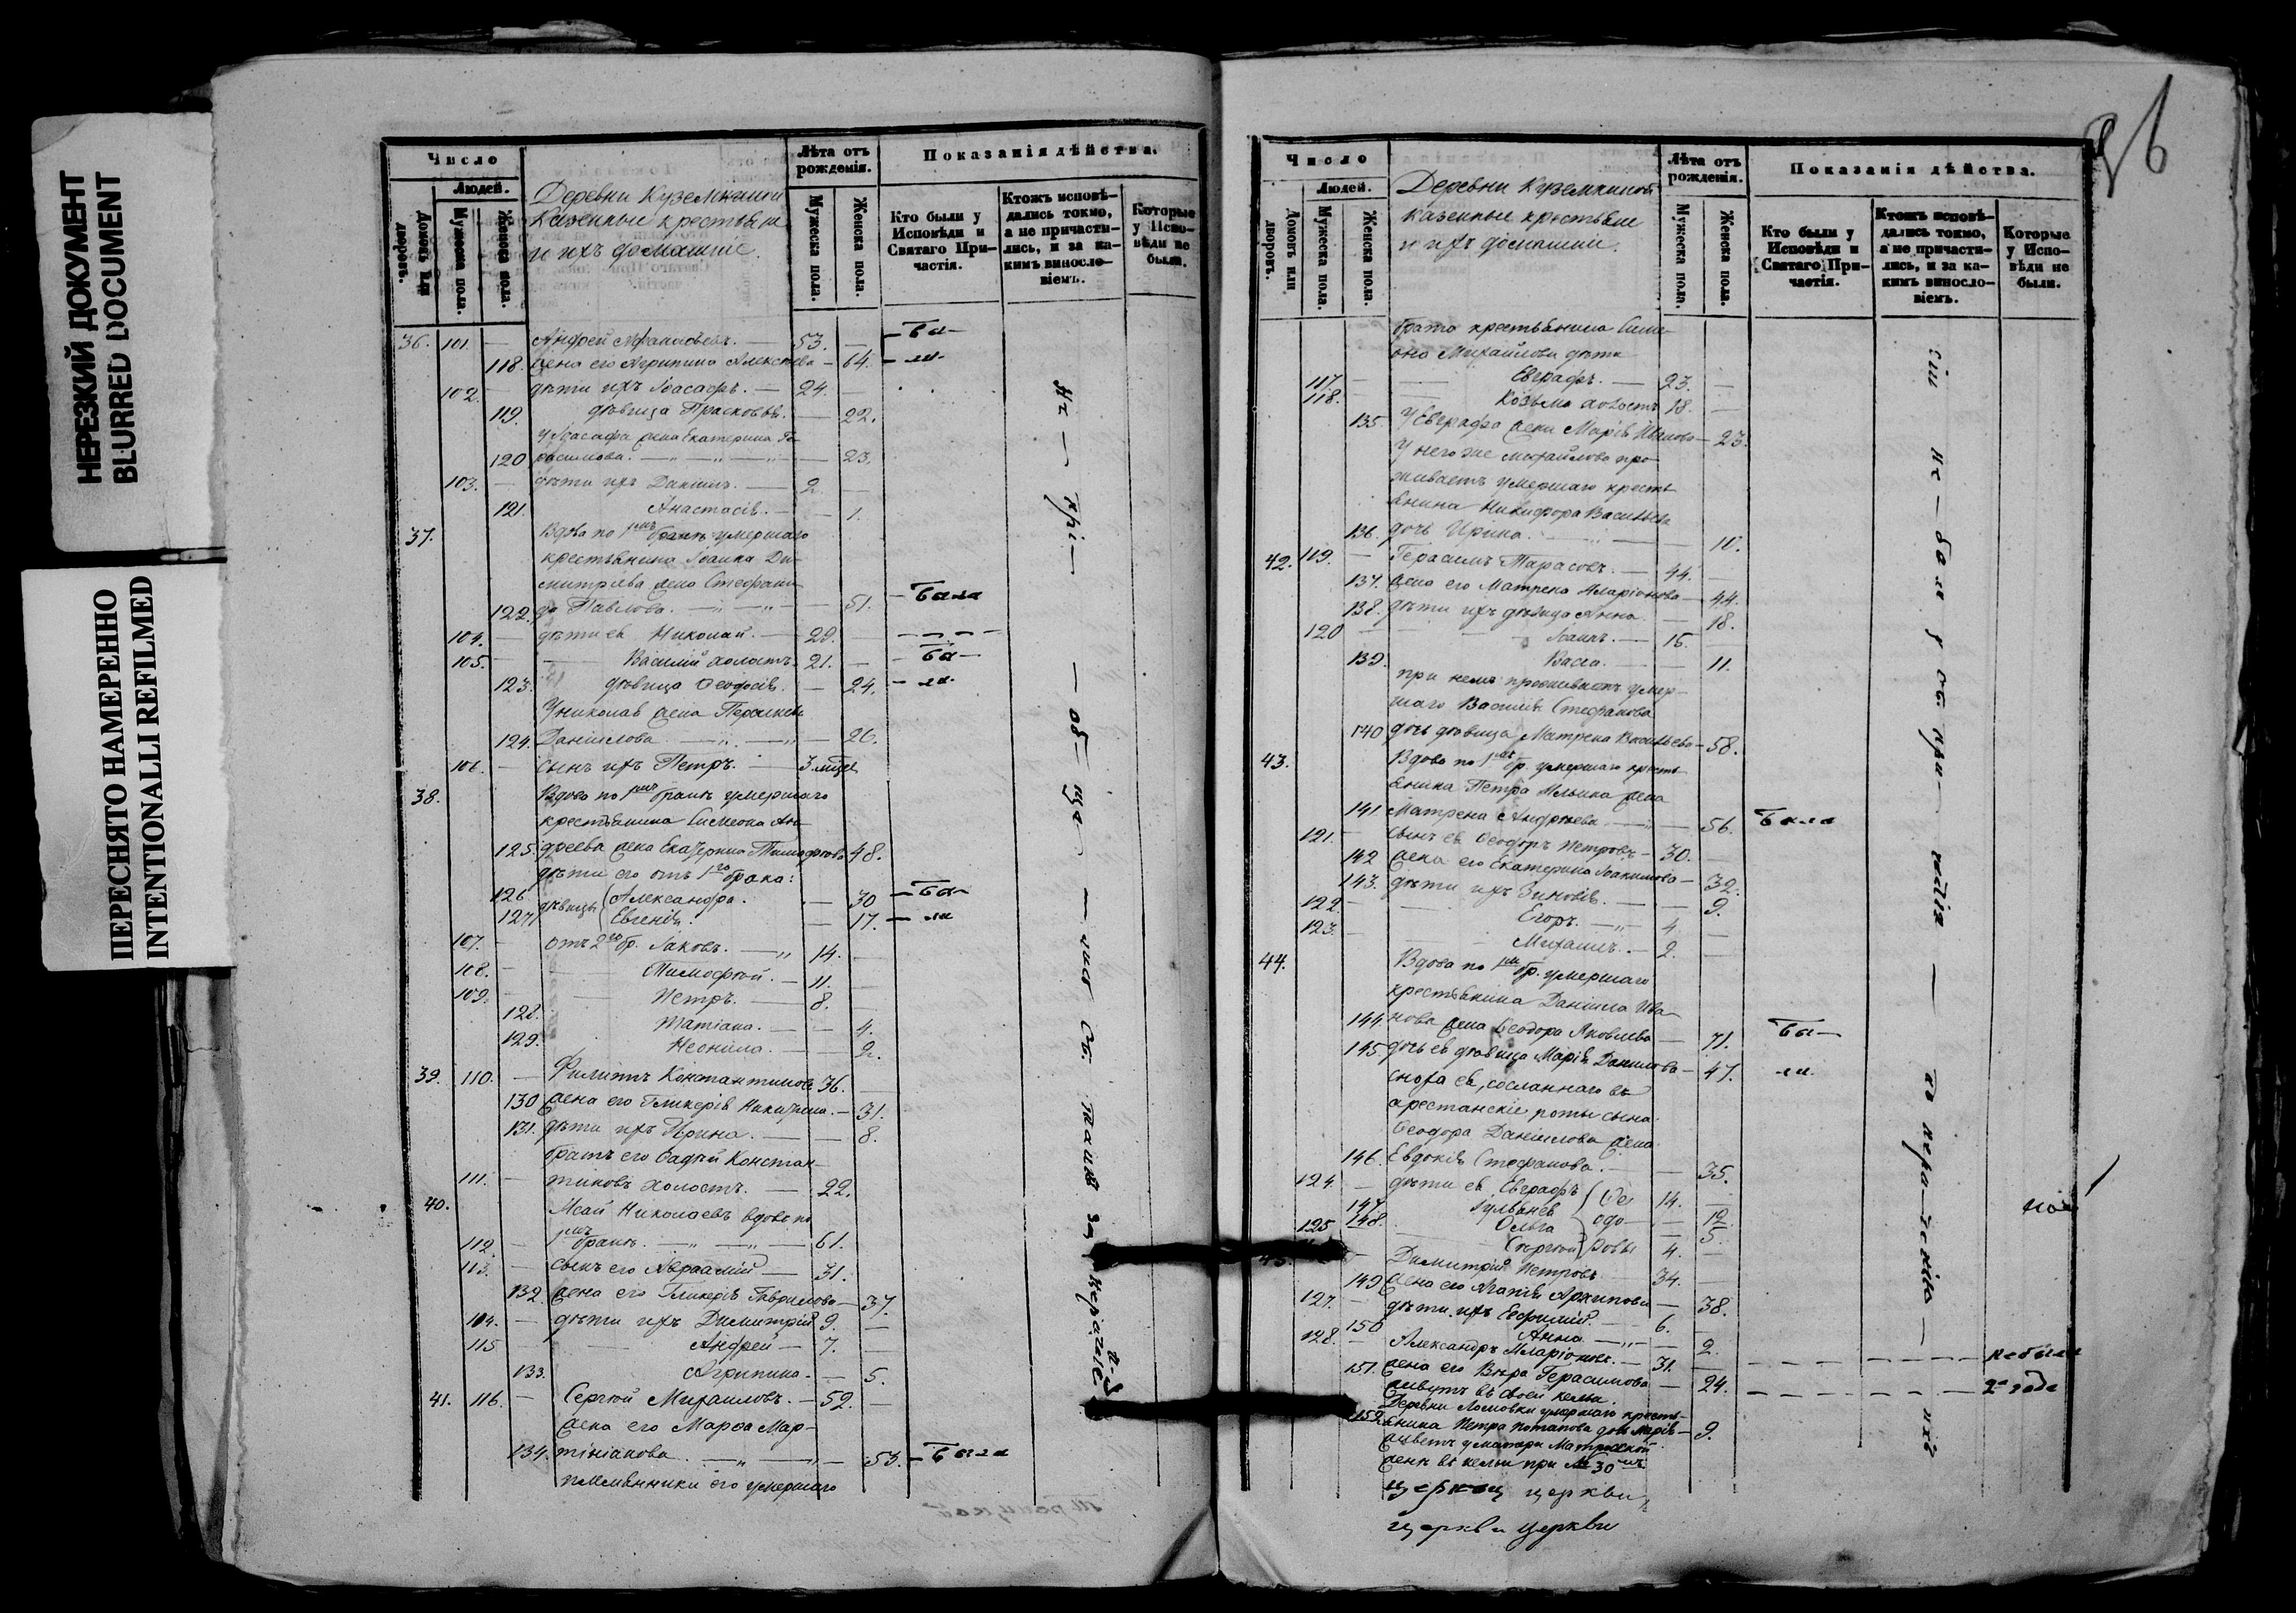 НЕРЕЗКИЙ ДОКУМЕНТ
BLURRED DOCUMENT
ПЕРЕСНЯТО НАМЕРЕННО
INTENTIONALLI REFILMED
Число
Людей.
Домовъ или дворовъ.
Мужеска пола.
Женска пола.
Деревни Куземкиной
казенные крестьяне
и ихъ домашніе.
Лѣта отъ рожденія.
Мужеска пола.
Женска пола.
Показанія дѣйства.
Кто были у Исповѣди и Святаго Причастія.
Ктожъ исповѣдались токмо, а не причастились, и за какимъ винословіемъ.
Которые у Исповѣди не были.
36. 101. — Андрей Афанасьевъ. — 53. — Бы-
118. жена его Агрипина Алексѣева — 64. — ли
102. — дѣти ихъ Іоасафъ. — 24. —
119. дѣвица Прасковья. — 22.
У Іоасафа жена Екатерина Ге-
120 расимова. — 23.
103. — дѣти ихъ Даніилъ. — 2. —
121. Анастасія. — 1.
37. Вдова по 1мъ бракѣ умершаго
крестьянина Іоанна Ди-
митріева жена Стефани-
122. да Павлова. — 51. — Была
104. — дѣти ея Николай. — 29. —
105. — Василій холостъ. 21. — Бы-
123. дѣвица Ѳеодосія. — 24. — ли
У Николая жена Пелагея
124. Даніилова — 26.
106. — сынъ ихъ Петръ. — 3 мѣсяц.
38. Вдова по 1мъ бракѣ умершаго
крестьянина Симеона Ан-
125. дреева жена Екатерина Тимофѣева 48.
дѣти его отъ 1го брака:
126 дѣвицы Александра. — 30 — Бы-
127. Евгенія. — 17. — ли
107. — отъ 2го бр. Іаковъ. — 14. —
108. — Тимофей. — 11. —
109. — Петръ. — 8. —
128. Татіана. — 4.
129. Неонила. — 2.
39. 110. — Филиппъ Константиновъ 36. —
130 жена его Гликерія Никитина. — 31.
131. дѣти ихъ Ирина. — 8.
братъ его Фадѣй Констан-
111. — тиновъ холостъ. — 22.
40. Исай Николаевъ вдовъ по
112. — 1мъ бракѣ. — 61.
113. — сынъ его Авраамій — 31.
132. жена его Гликерія Гаврилова — 37.
114. — дѣти ихъ Димитрій 9. —
115 — Андрей — 7. —
133. Агрипина. — 5.
41. 116. — Сергѣй Михаиловъ. — 52. —
жена его Марѳа Мар-
134. тиніанова — 53. — Была
племянники его умершаго
Число
Людей.
Домовъ или дворовъ.
Мужеска пола.
Женска пола.
Деревни Куземкиной
казенные крестьяне
и ихъ домашніе.
Лѣта отъ рожденія.
Мужеска пола.
Женска пола.
Показанія дѣйства.
Кто были у Исповѣди и Святаго Причастія.
Ктожъ исповѣдались токмо, а не причастились, и за какимъ винословіемъ.
Которые у Исповѣди не были.
брата крестьянина Симе-
она Михайлова дѣти
117. — Евграфъ. — 23. —
118. — Козьма холостъ 18. —
135. У Евграфа жена Марія Иванова — 23.
У него же Михайлова про-
живаетъ умершаго кресть-
янина Никифора Васильева
136. дочь Ирина. — 10.
42. 119. — Герасимъ Тарасовъ. — 44. —
137. жена его Матрена Иларіонова — 44.
138. дѣти ихъ дѣвица Анна. — 18.
120 — Іоаннъ. — 15. —
139. Васса. — 11.
при немъ проживаетъ умер-
шаго Василія Стефанова
140 дочь дѣвица Матрена Васильева — 58.
43. Вдова по 1мъ бр. умершаго кресть-
янина Петра Ильина жена
141. Матрена Андреева — 56. Была
121. — сынъ ея Ѳеодоръ Петровъ — 30. —
142 жена его Екатерина Іоакимова — 32.
143. дѣти ихъ Зиновія. — 9.
122. — Егоръ. — 4. —
123. — Михаилъ. — 2. —
44. Вдова по 1мъ бр. умершаго
крестьянина Даніила Ива-
144. нова жена Ѳеодора Яковлева — 71. Бы-
145. дочь ея дѣвица Марія Данилова — 47. ли.
сноха ея, сосланнаго въ
арестанскіе роты сына
Ѳеодора Даніилова жена
146. Евдокія Стефанова. — 35.
124. — дѣти ея Евграфъ 14. —
147. Іуліанія — 12.
148. Ольга — 5.
125 — Сергѣй 4. —
Ѳе одо- ровы
45. — Димитрій Петровъ — 34. —
149 жена его Агапія Архипова — 38.
127. — дѣти ихъ Евфимій. — 6. —
150 Анна — 2.
128. — Александръ Иларіоновъ. — 31. — не были
151. жена его Вѣра Герасимова — 24. 2 года
живутъ въ своей кельи.
Деревни Ломовки умершаго кресть-
152 янина Петра Потапова дочь Марія — 9.
живетъ у матери
въ кельи при № 30мъ
церкви
церкви церкви